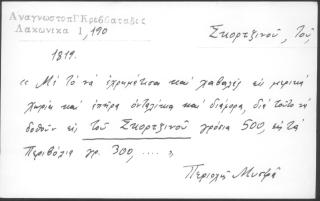 Ἀναγνωστοπ. Κρεββαταξὲς
Λακωνικά 1, 190
Σκορτζινοῦ, Τοῦ,
1819.
« Μὲ τὸ νὰ ἐχρημάτισα καὶ χαβαλὲς εἰς μερικὰ
χωρία καὶ ἐπῆρα ὀνταλίκια καὶ διάφορα, διὰ τοῦτο νὰ
δοθοῦν εἰς τοῦ Σκορτζινοῦ γρόσια 500, εἰς τὰ
Περιβόλια γρ. 300, .... »
Περιοχὴ Μυστρᾶ